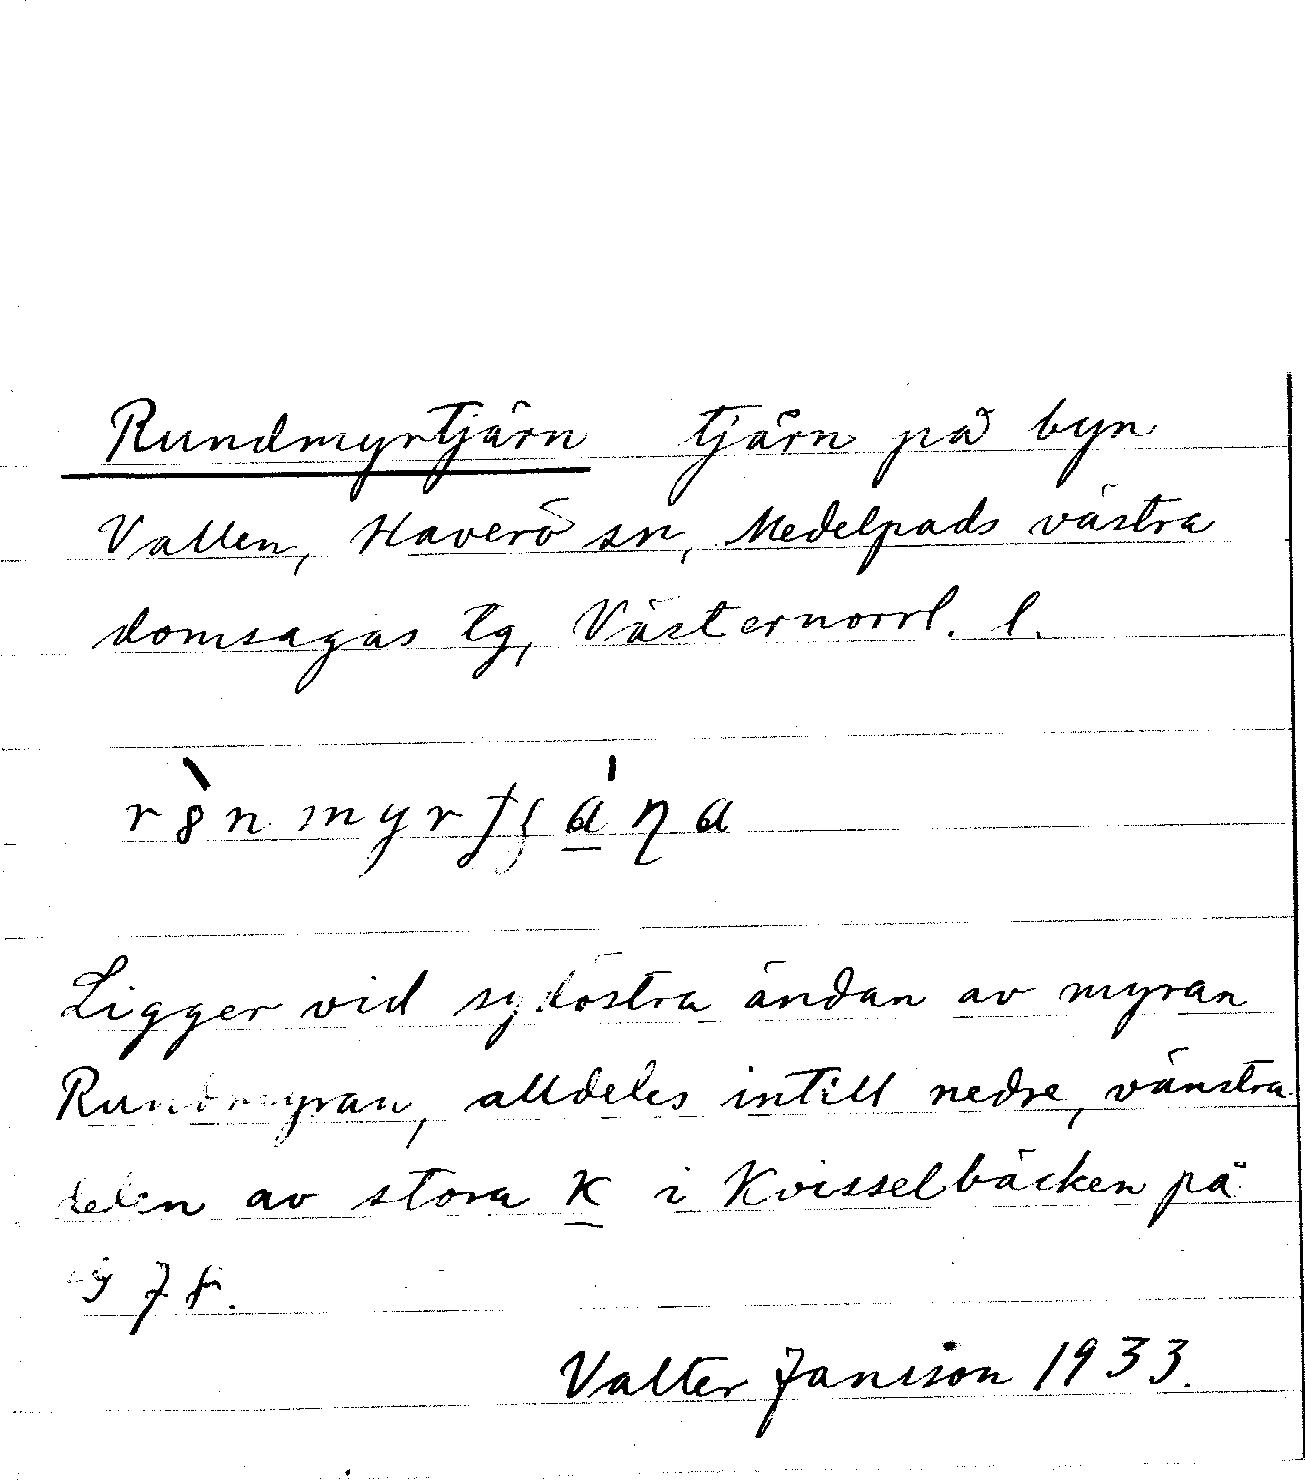 Rundmyrtjärn tjärn på byn
Vallen, Haverö sn, Medelpads västra
domsagas tg, Västernorrl. l.
Ligger vid sydöstra ändan av myran
Rundmyran, alldeles intill nedre, vänstra
delen av stora K i Kvisselbäcken på
Valter Jansson 1933.